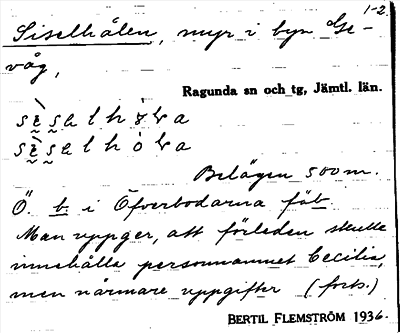 1-2.
Siselhålen, myr i byn Ge-
våg,
Ragunda sn och tg, Jämtl. län.
Belägen 500 m.
Ö. b. i Öfverbodarna fäb.
Man uppger, att förleden skulle
innehålla personnamnet Cecilia,
men närmare uppgifter (forts.)
BERTIL FLEMSTRÖM 1936.